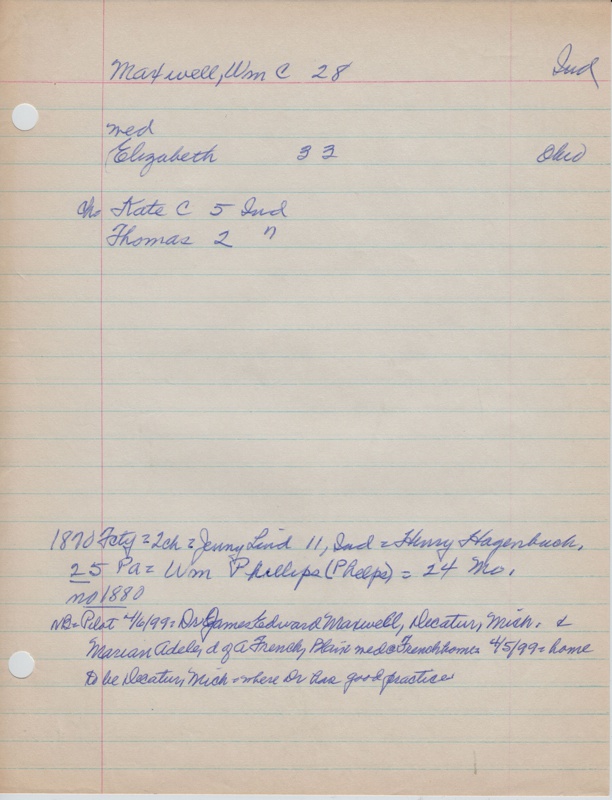 Maxwell, Wm C 28 Ind
med
Elizabeth 33 Ohio
ch. Kate C 5 Ind
Thomas 2 "
1870 Fcty = 2ch = Jenny Lind 11, Ind = Henry Hagenbuch,
25 Pa = Wm Phillips (Phelps) = 24 Mo.
no 1880
NB = Pilot 4/6/99 = Dr James Edward Maxwell, Decatur, Mich. &
Marian Adele, d of A French, Blaine med @ French home 4/5/99 = home
to be Decatur, Mich - where Dr has good practice